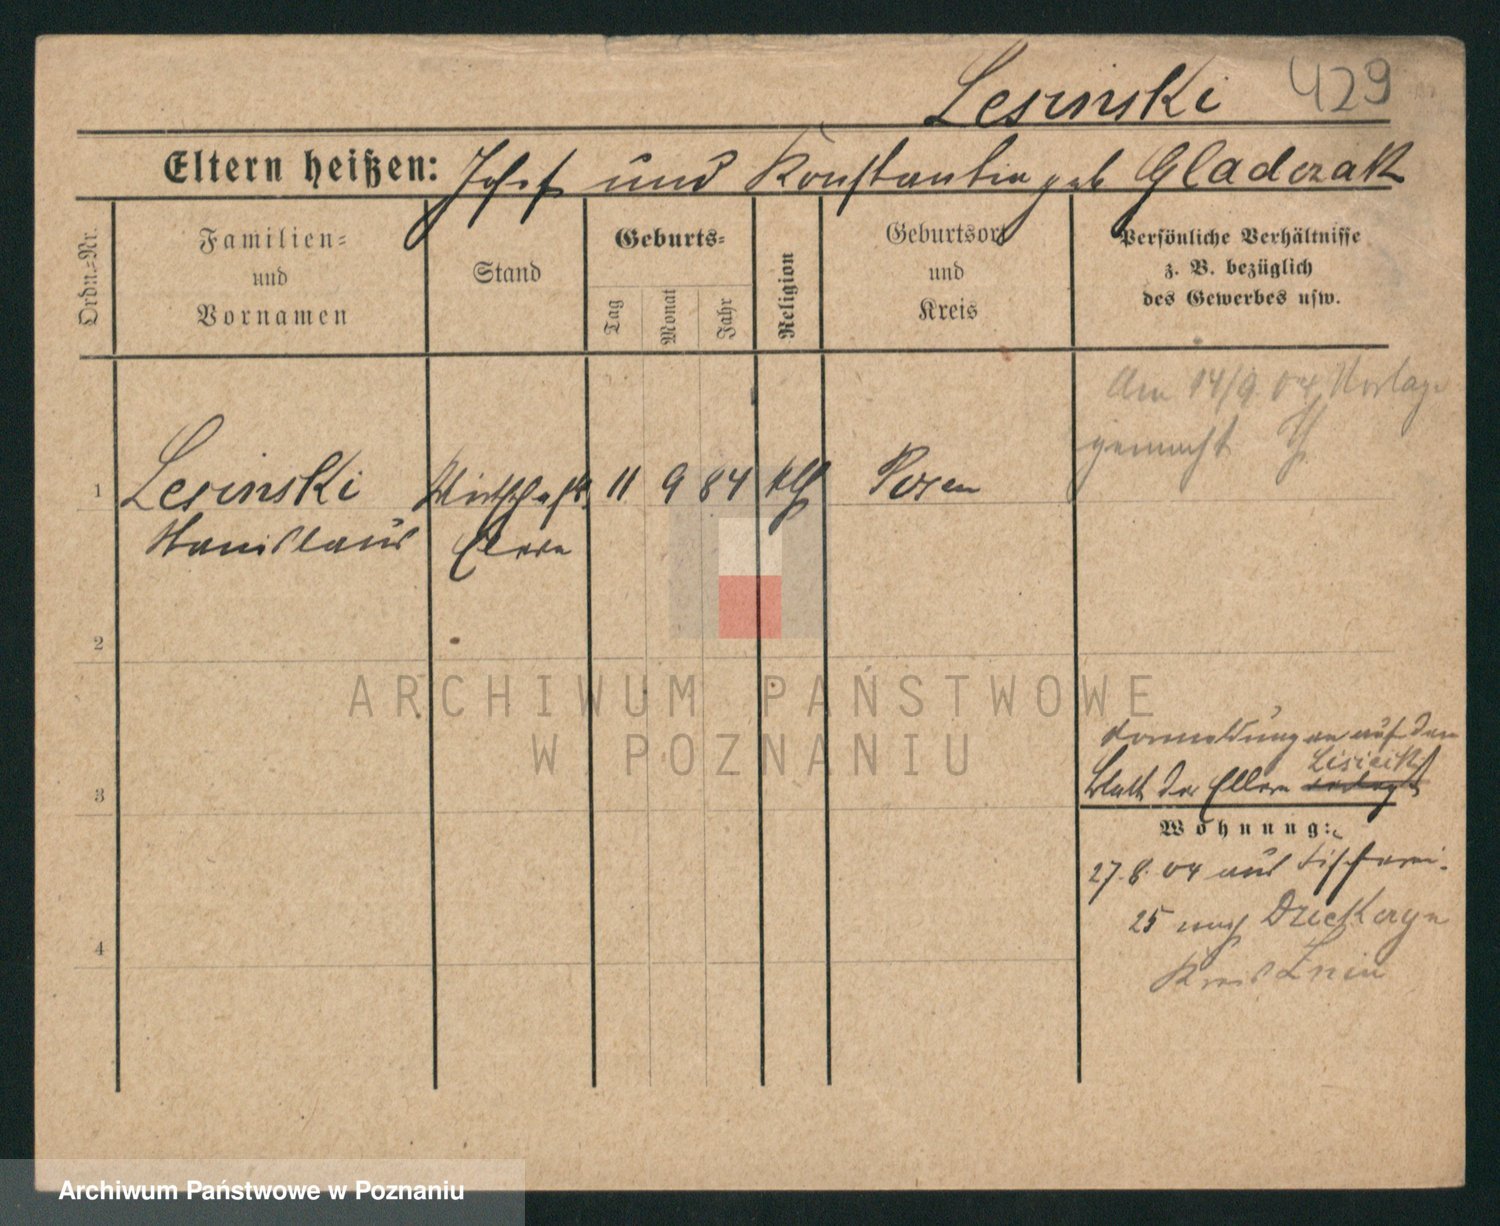 Lesinski 429
Eltern heißen: Josef und Konstantia geb Gladczak
Ordn.=Nr.
Familien=
und
Vornamen
Stand
Geburts=
Tag
Monat
Jahr
Religion
Geburtsort
und
Kreis
Persönliche Verhältnisse
z. B. bezüglich
des Gewerbes usw.
Am 14/9 04 Vorlage
gemacht
1 Lesinski Wirtschafts 11 9 84 kth Posen
Stanislaus
2
ARCHIWUM PAŃSTWOWE
W POZNANIU
3
4
auf dem
Blatt der Eltern
Wohnung:
27.8.04 aus Fischerei
25 nach
Kreis Znin
Archiwum Państwowe w Poznaniu